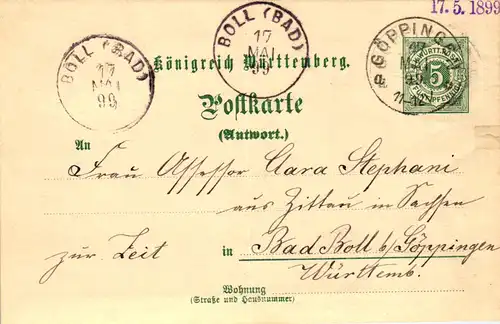 17.5.1899
BOLL (BAD)
17
MAI
99
BOLL (BAD)
17
MAI
99
GÖPPINGEN
MAI
99
11-12
5
Königreich Württemberg.
Postkarte
(Antwort.)
An
Frau Assessor Clara Stephani
aus Zittau in Sachsen
zur Zeit in Bad Boll b/Göppingen
Württemb.
Wohnung
(Straße und Hausnummer)